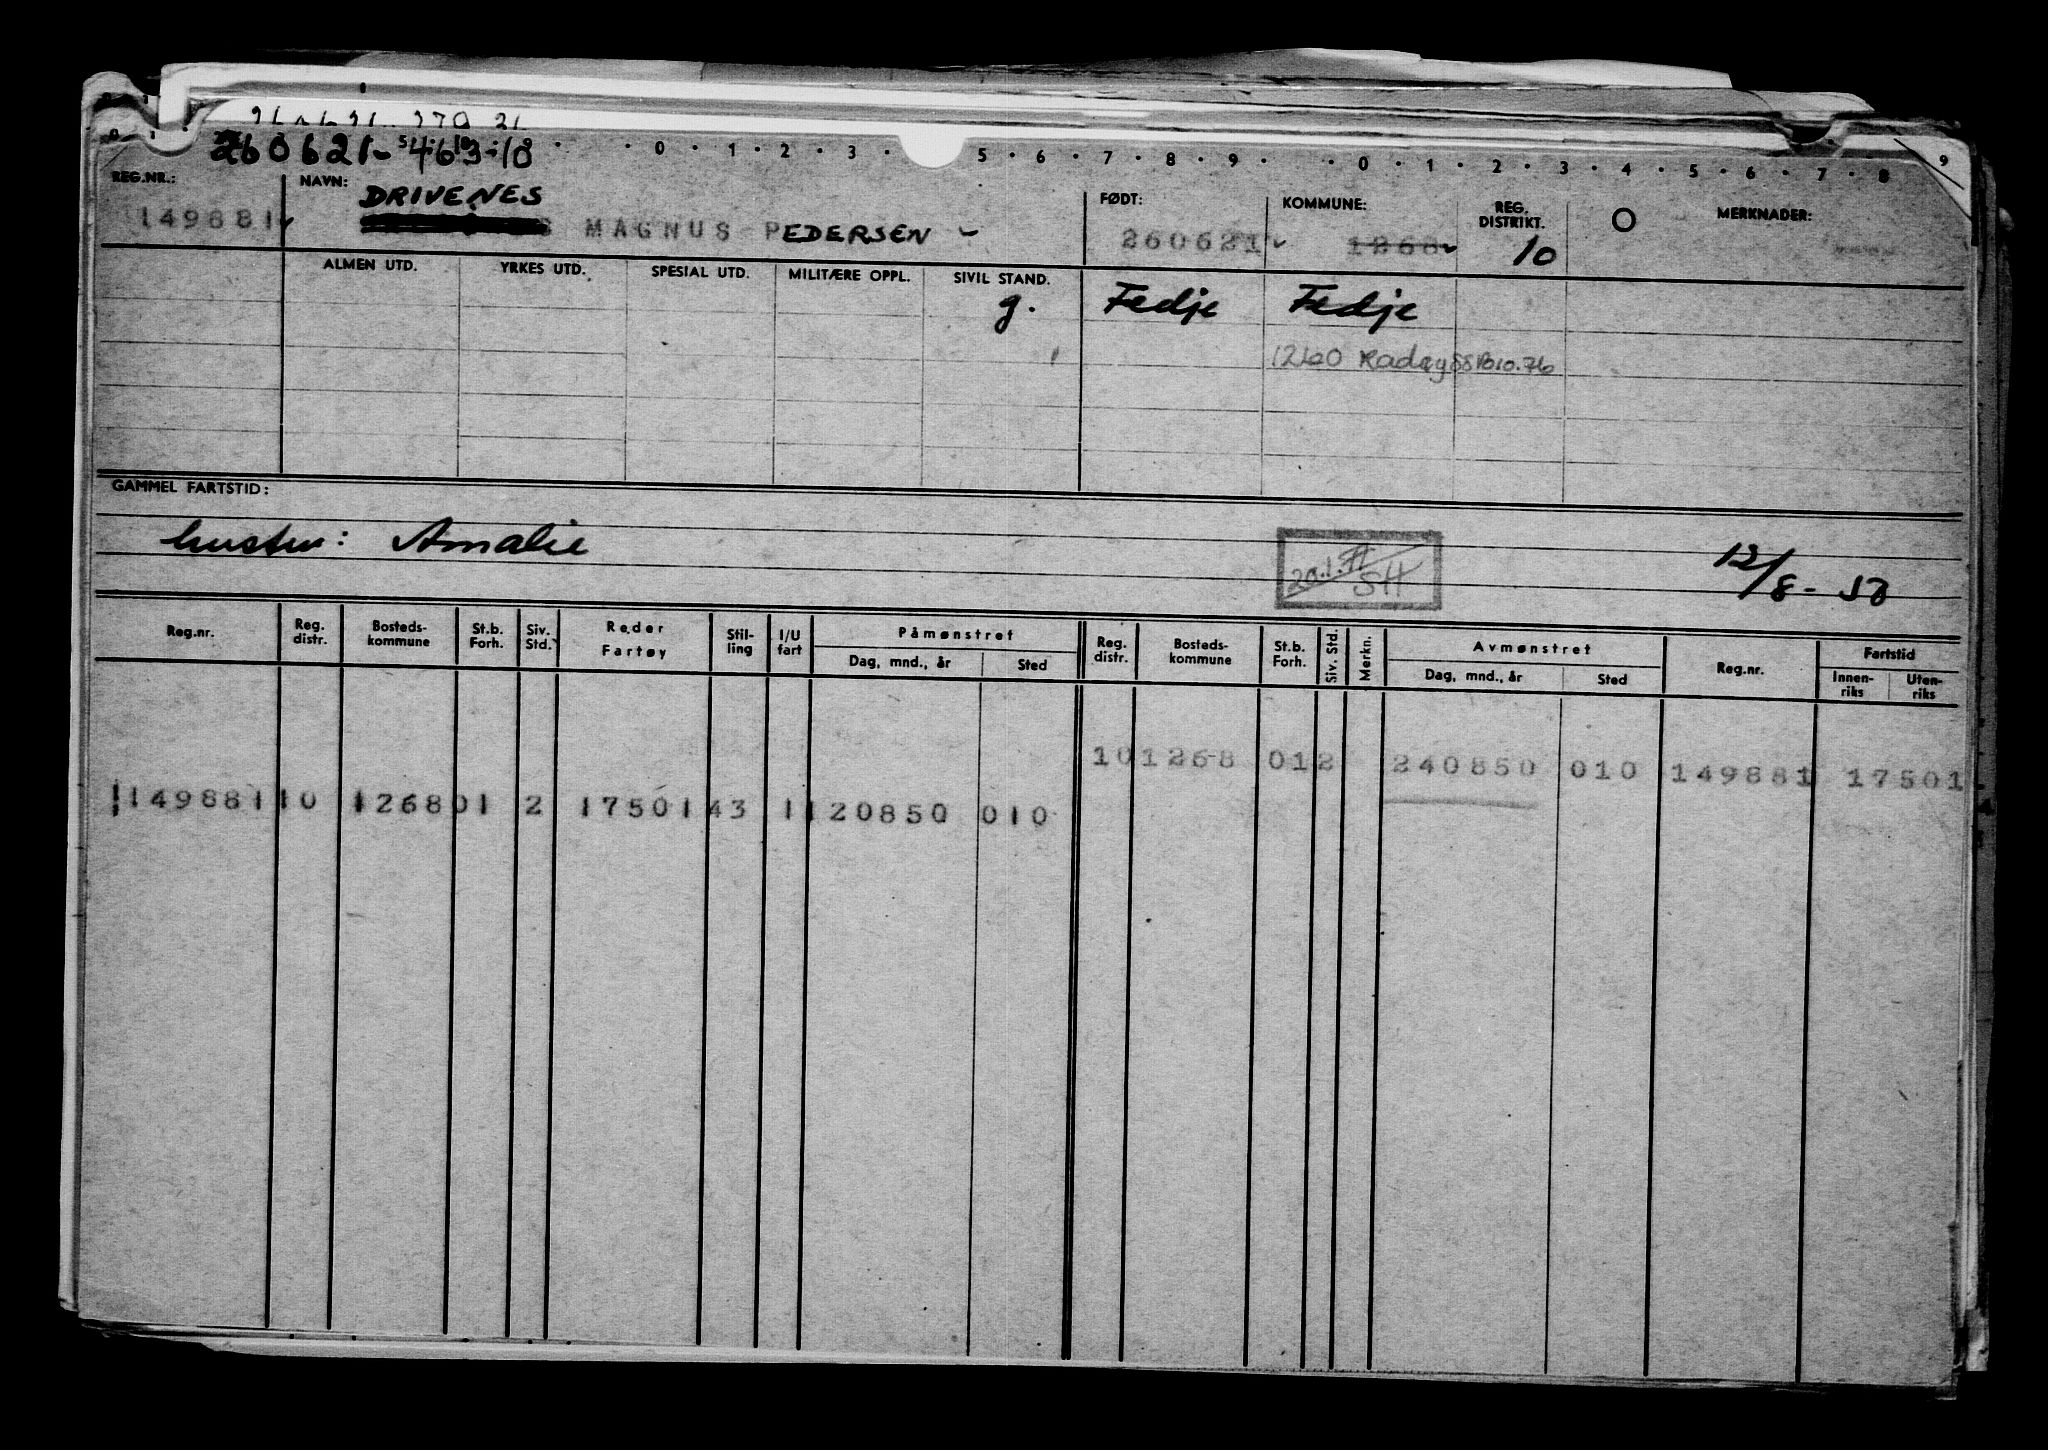 260621
0 · 1 · 2 · 3 · 5 · 6 · 7 · 8 · 9 · 0 · 1 · 2 · 3 · 4 · 5 · 6 · 7 · 8 9
REG.NR.: NAVN: FØDT: KOMMUNE: REG. DISTRIKT. MERKNADER:
DRIVENES
149881 MAGNUS PEDERSEN 260621 1268 10
ALMEN UTD. YRKES UTD. SPESIAL UTD. MILITÆRE OPPL. SIVIL STAND.
g. Fedje Fedje
1260 Radøy 10.76
GAMMEL FARTSTID:
hustru: Amalie
20.1.71 SH
12/8-50
Reg.nr. Reg. distr. Bosteds-kommune St.b. Forh. Siv. Std. Reder Fartøy Stil-ling I/U fart Påmønstret Reg. distr. Bosteds-kommune St.b. Forh. Siv. Std. Merkn. Avmønstret Reg.nr. Fartstid
Dag, mnd., år Sted Dag, mnd., år Sted Innen-riks Uten-riks
10 1268 01 2 240850 010 149881 17501
149881 10 1268 01 2 17501 43 1 120850 010